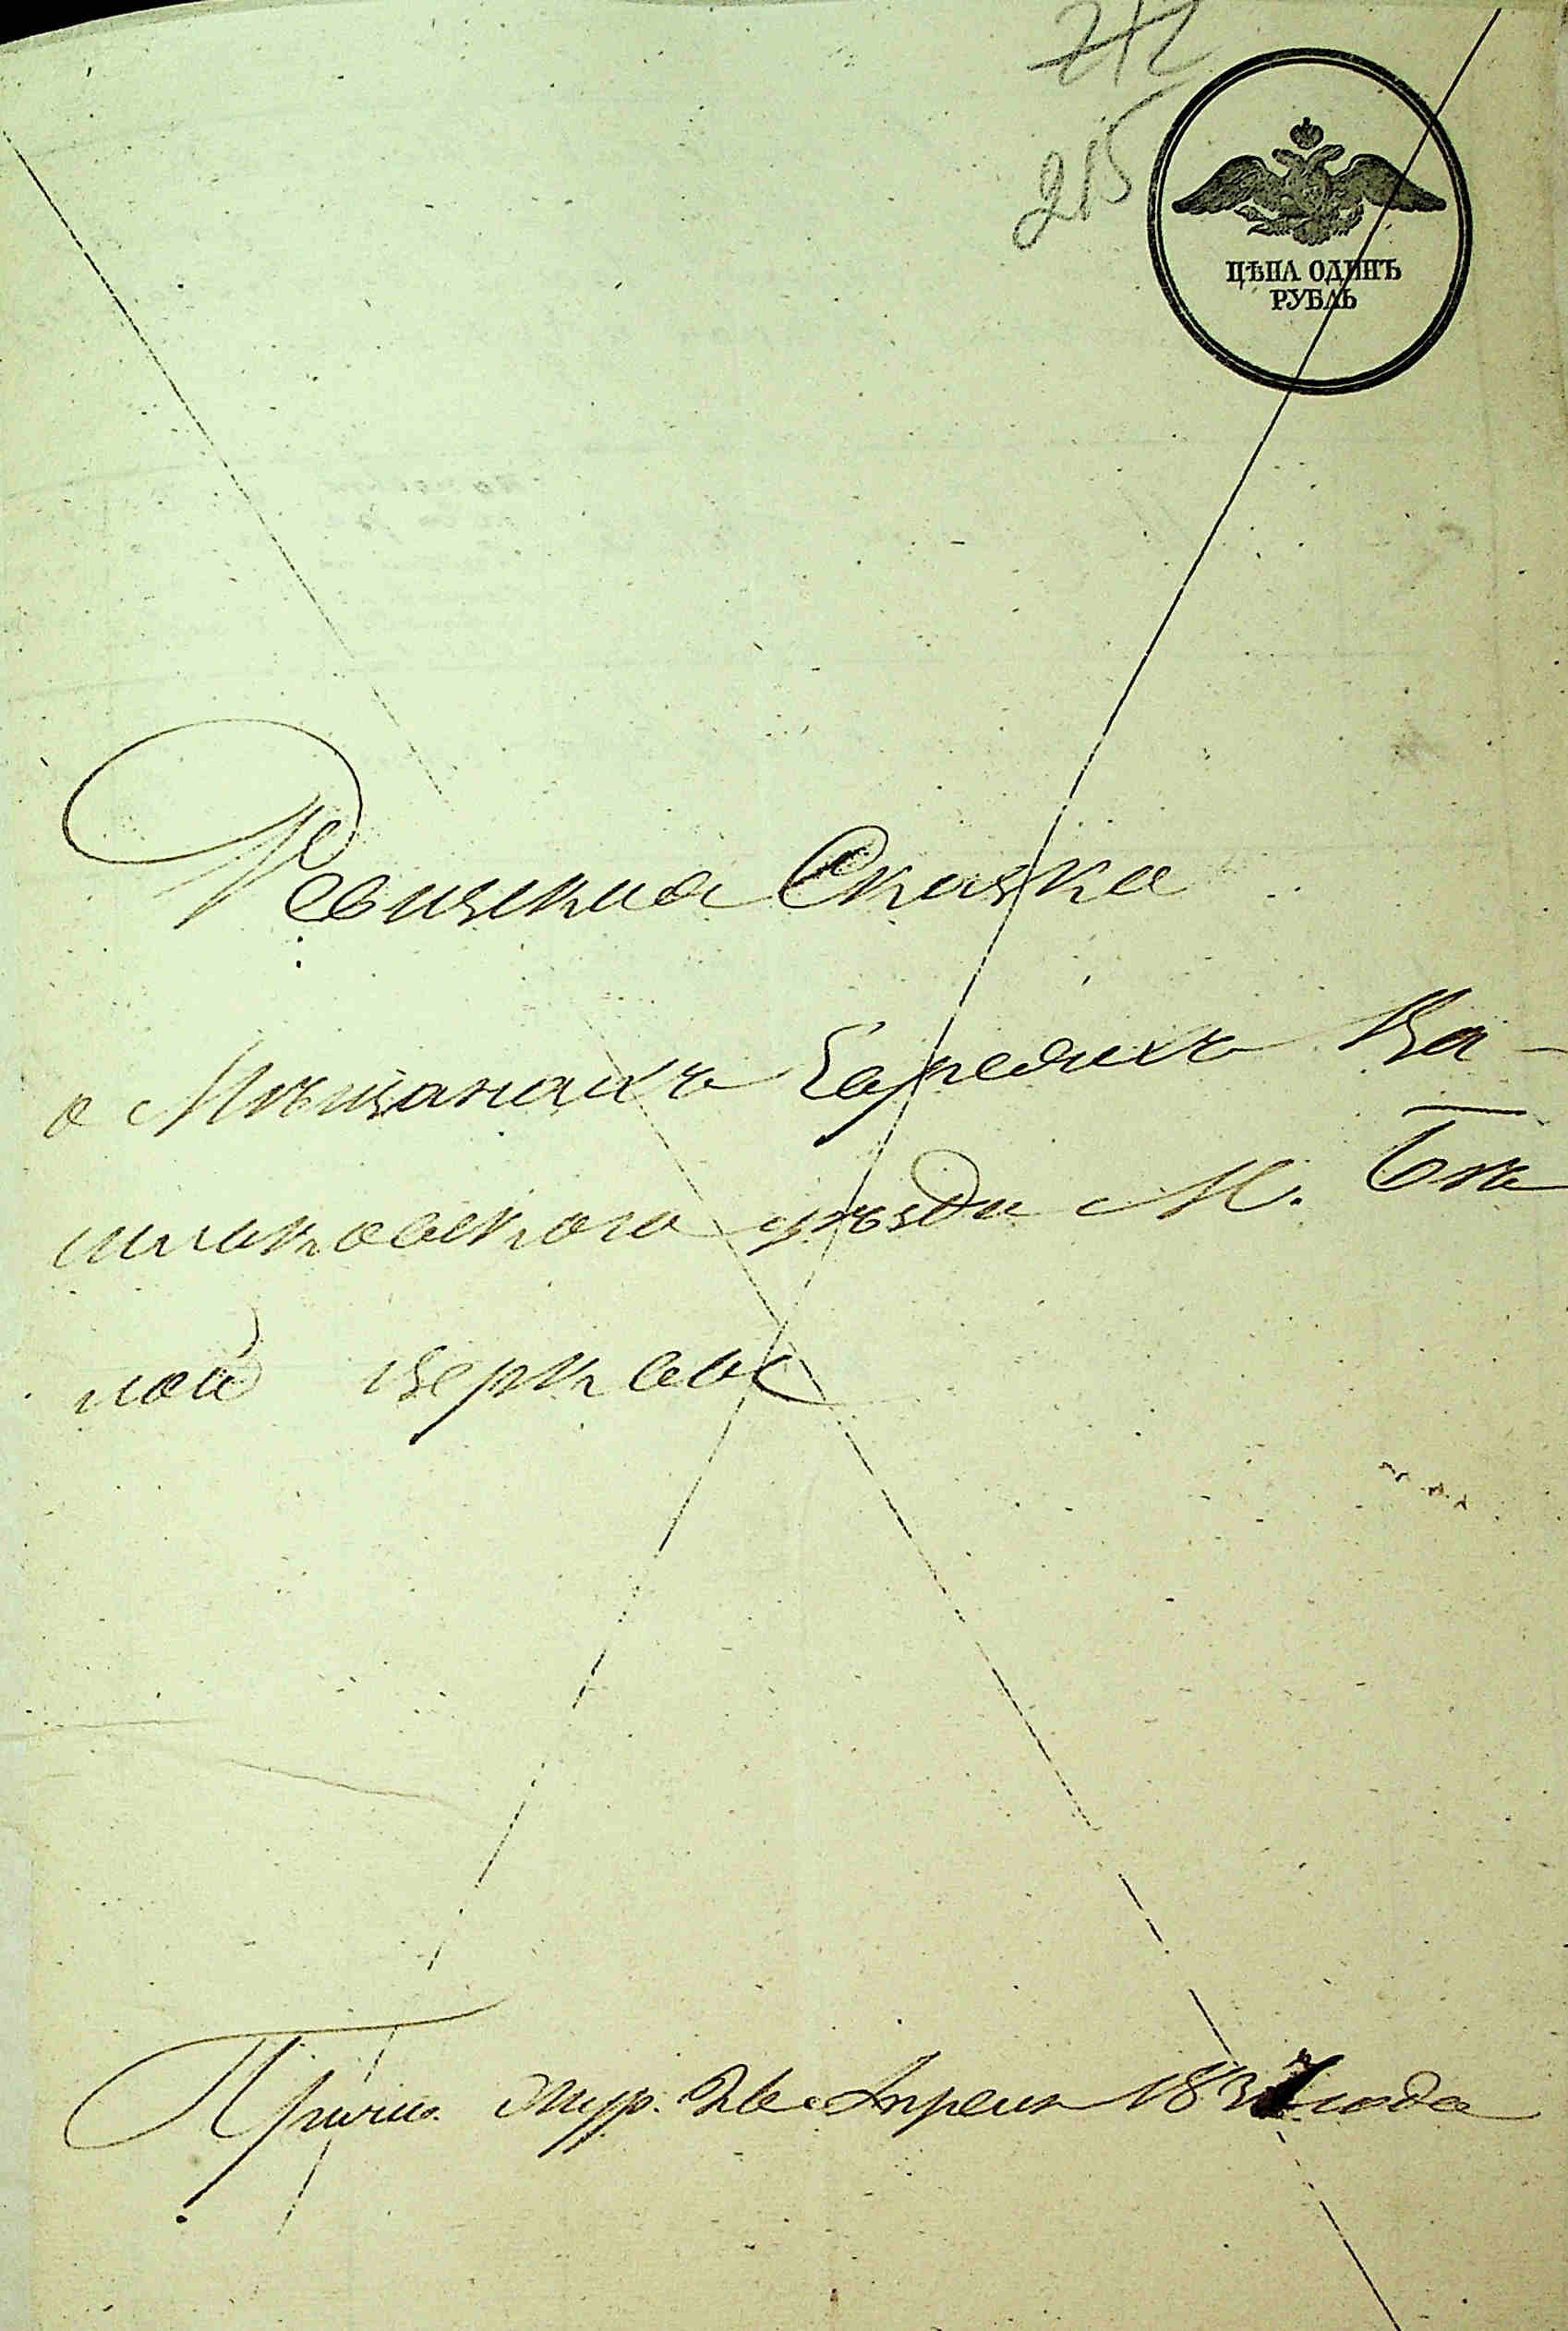 212
215
ЦѢНА ОДИНЪ
РУБЛЬ
Ревизская Сказка
о Мѣщанахъ Евреяхъ Ва-
сильковскаго уѣзда М. Бѣ
лой церкви
26 Апреля 183 года